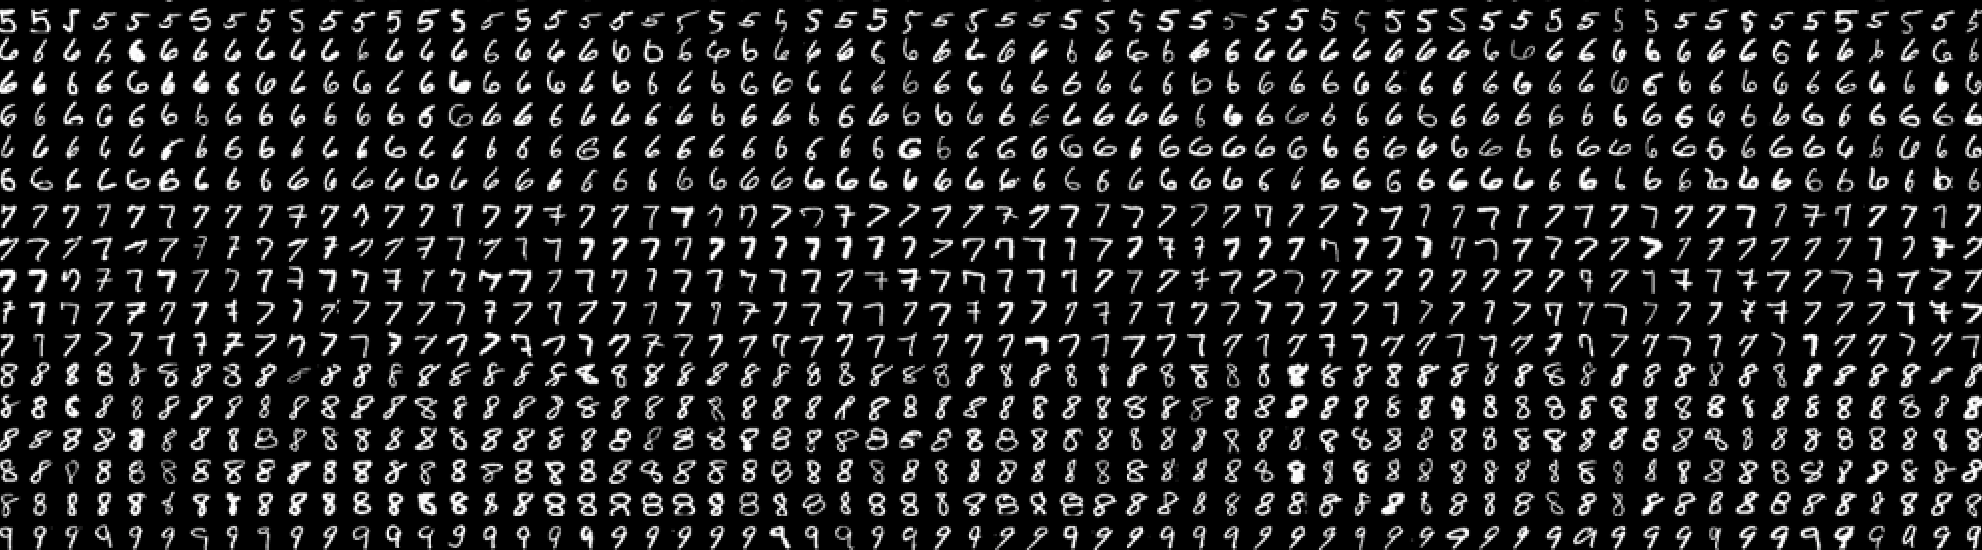 5 5 5 5 5 5 5 5 5 5 5 5 5 5 5 5 5 5 5 5 5 5 5 5 5 5 5 5 5 5 5 5 5 5 5 5 5 5 5 5 5 5 5 5 5 5 5 5 5 5 5 5 5 5 5 5 5 5 5 5 5 5
6 6 6 6 6 6 6 6 6 6 6 6 6 6 6 6 6 6 6 6 6 6 6 6 6 6 6 6 6 6 6 6 6 6 6 6 6 6 6 6 6 6 6 6 6 6 6 6 6 6 6 6 6 6 6 6 6 6 6 6 6 6
6 6 6 6 6 6 6 6 6 6 6 6 6 6 6 6 6 6 6 6 6 6 6 6 6 6 6 6 6 6 6 6 6 6 6 6 6 6 6 6 6 6 6 6 6 6 6 6 6 6 6 6 6 6 6 6 6 6 6 6 6 6
6 6 6 6 6 6 6 6 6 6 6 6 6 6 6 6 6 6 6 6 6 6 6 6 6 6 6 6 6 6 6 6 6 6 6 6 6 6 6 6 6 6 6 6 6 6 6 6 6 6 6 6 6 6 6 6 6 6 6 6 6 6
6 6 6 6 6 6 6 6 6 6 6 6 6 6 6 6 6 6 6 6 6 6 6 6 6 6 6 6 6 6 6 6 6 6 6 6 6 6 6 6 6 6 6 6 6 6 6 6 6 6 6 6 6 6 6 6 6 6 6 6 6 6
6 6 6 6 6 6 6 6 6 6 6 6 6 6 6 6 6 6 6 6 6 6 6 6 6 6 6 6 6 6 6 6 6 6 6 6 6 6 6 6 6 6 6 6 6 6 6 6 6 6 6 6 6 6 6 6 6 6 6 6 6 6
7 7 7 7 7 7 7 7 7 7 7 7 7 7 7 7 7 7 7 7 7 7 7 7 7 7 7 7 7 7 7 7 7 7 7 7 7 7 7 7 7 7 7 7 7 7 7 7 7 7 7 7 7 7 7 7 7 7 7 7 7 7
7 7 7 7 7 7 7 7 7 7 7 7 7 7 7 7 7 7 7 7 7 7 7 7 7 7 7 7 7 7 7 7 7 7 7 7 7 7 7 7 7 7 7 7 7 7 7 7 7 7 7 7 7 7 7 7 7 7 7 7 7 7
7 7 7 7 7 7 7 7 7 7 7 7 7 7 7 7 7 7 7 7 7 7 7 7 7 7 7 7 7 7 7 7 7 7 7 7 7 7 7 7 7 7 7 7 7 7 7 7 7 7 7 7 7 7 7 7 7 7 7 7 7 7
7 7 7 7 7 7 7 7 7 7 7 7 7 7 7 7 7 7 7 7 7 7 7 7 7 7 7 7 7 7 7 7 7 7 7 7 7 7 7 7 7 7 7 7 7 7 7 7 7 7 7 7 7 7 7 7 7 7 7 7 7 7
7 7 7 7 7 7 7 7 7 7 7 7 7 7 7 7 7 7 7 7 7 7 7 7 7 7 7 7 7 7 7 7 7 7 7 7 7 7 7 7 7 7 7 7 7 7 7 7 7 7 7 7 7 7 7 7 7 7 7 7 7 7
8 8 8 8 8 8 8 8 8 8 8 8 8 8 8 8 8 8 8 8 8 8 8 8 8 8 8 8 8 8 8 8 8 8 8 8 8 8 8 8 8 8 8 8 8 8 8 8 8 8 8 8 8 8 8 8 8 8 8 8 8 8
8 8 8 8 8 8 8 8 8 8 8 8 8 8 8 8 8 8 8 8 8 8 8 8 8 8 8 8 8 8 8 8 8 8 8 8 8 8 8 8 8 8 8 8 8 8 8 8 8 8 8 8 8 8 8 8 8 8 8 8 8 8
8 8 8 8 8 8 8 8 8 8 8 8 8 8 8 8 8 8 8 8 8 8 8 8 8 8 8 8 8 8 8 8 8 8 8 8 8 8 8 8 8 8 8 8 8 8 8 8 8 8 8 8 8 8 8 8 8 8 8 8 8 8
8 8 8 8 8 8 8 8 8 8 8 8 8 8 8 8 8 8 8 8 8 8 8 8 8 8 8 8 8 8 8 8 8 8 8 8 8 8 8 8 8 8 8 8 8 8 8 8 8 8 8 8 8 8 8 8 8 8 8 8 8 8
8 8 8 8 8 8 8 8 8 8 8 8 8 8 8 8 8 8 8 8 8 8 8 8 8 8 8 8 8 8 8 8 8 8 8 8 8 8 8 8 8 8 8 8 8 8 8 8 8 8 8 8 8 8 8 8 8 8 8 8 8 8
9 9 9 9 9 9 9 9 9 9 9 9 9 9 9 9 9 9 9 9 9 9 9 9 9 9 9 9 9 9 9 9 9 9 9 9 9 9 9 9 9 9 9 9 9 9 9 9 9 9 9 9 9 9 9 9 9 9 9 9 9 9